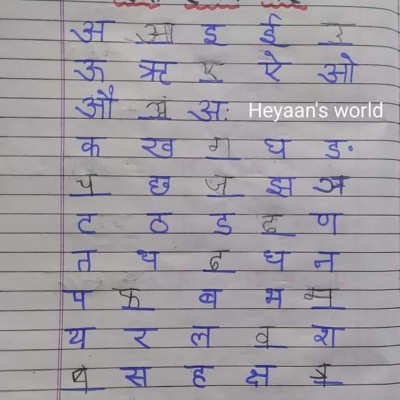 अ आ इ ई उ
ऊ ऋ ए ऐ ओ
औ अं अः Heyaan's world
क ख ग घ ङ
च छ ज झ ञ
ट ठ ड ढ ण
त थ द ध न
प फ ब भ म
य र ल व श
ष स ह क्ष त्र